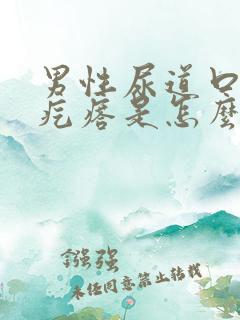 男性尿道口
疙瘩是怎麼
镪强
未经同意禁止转载